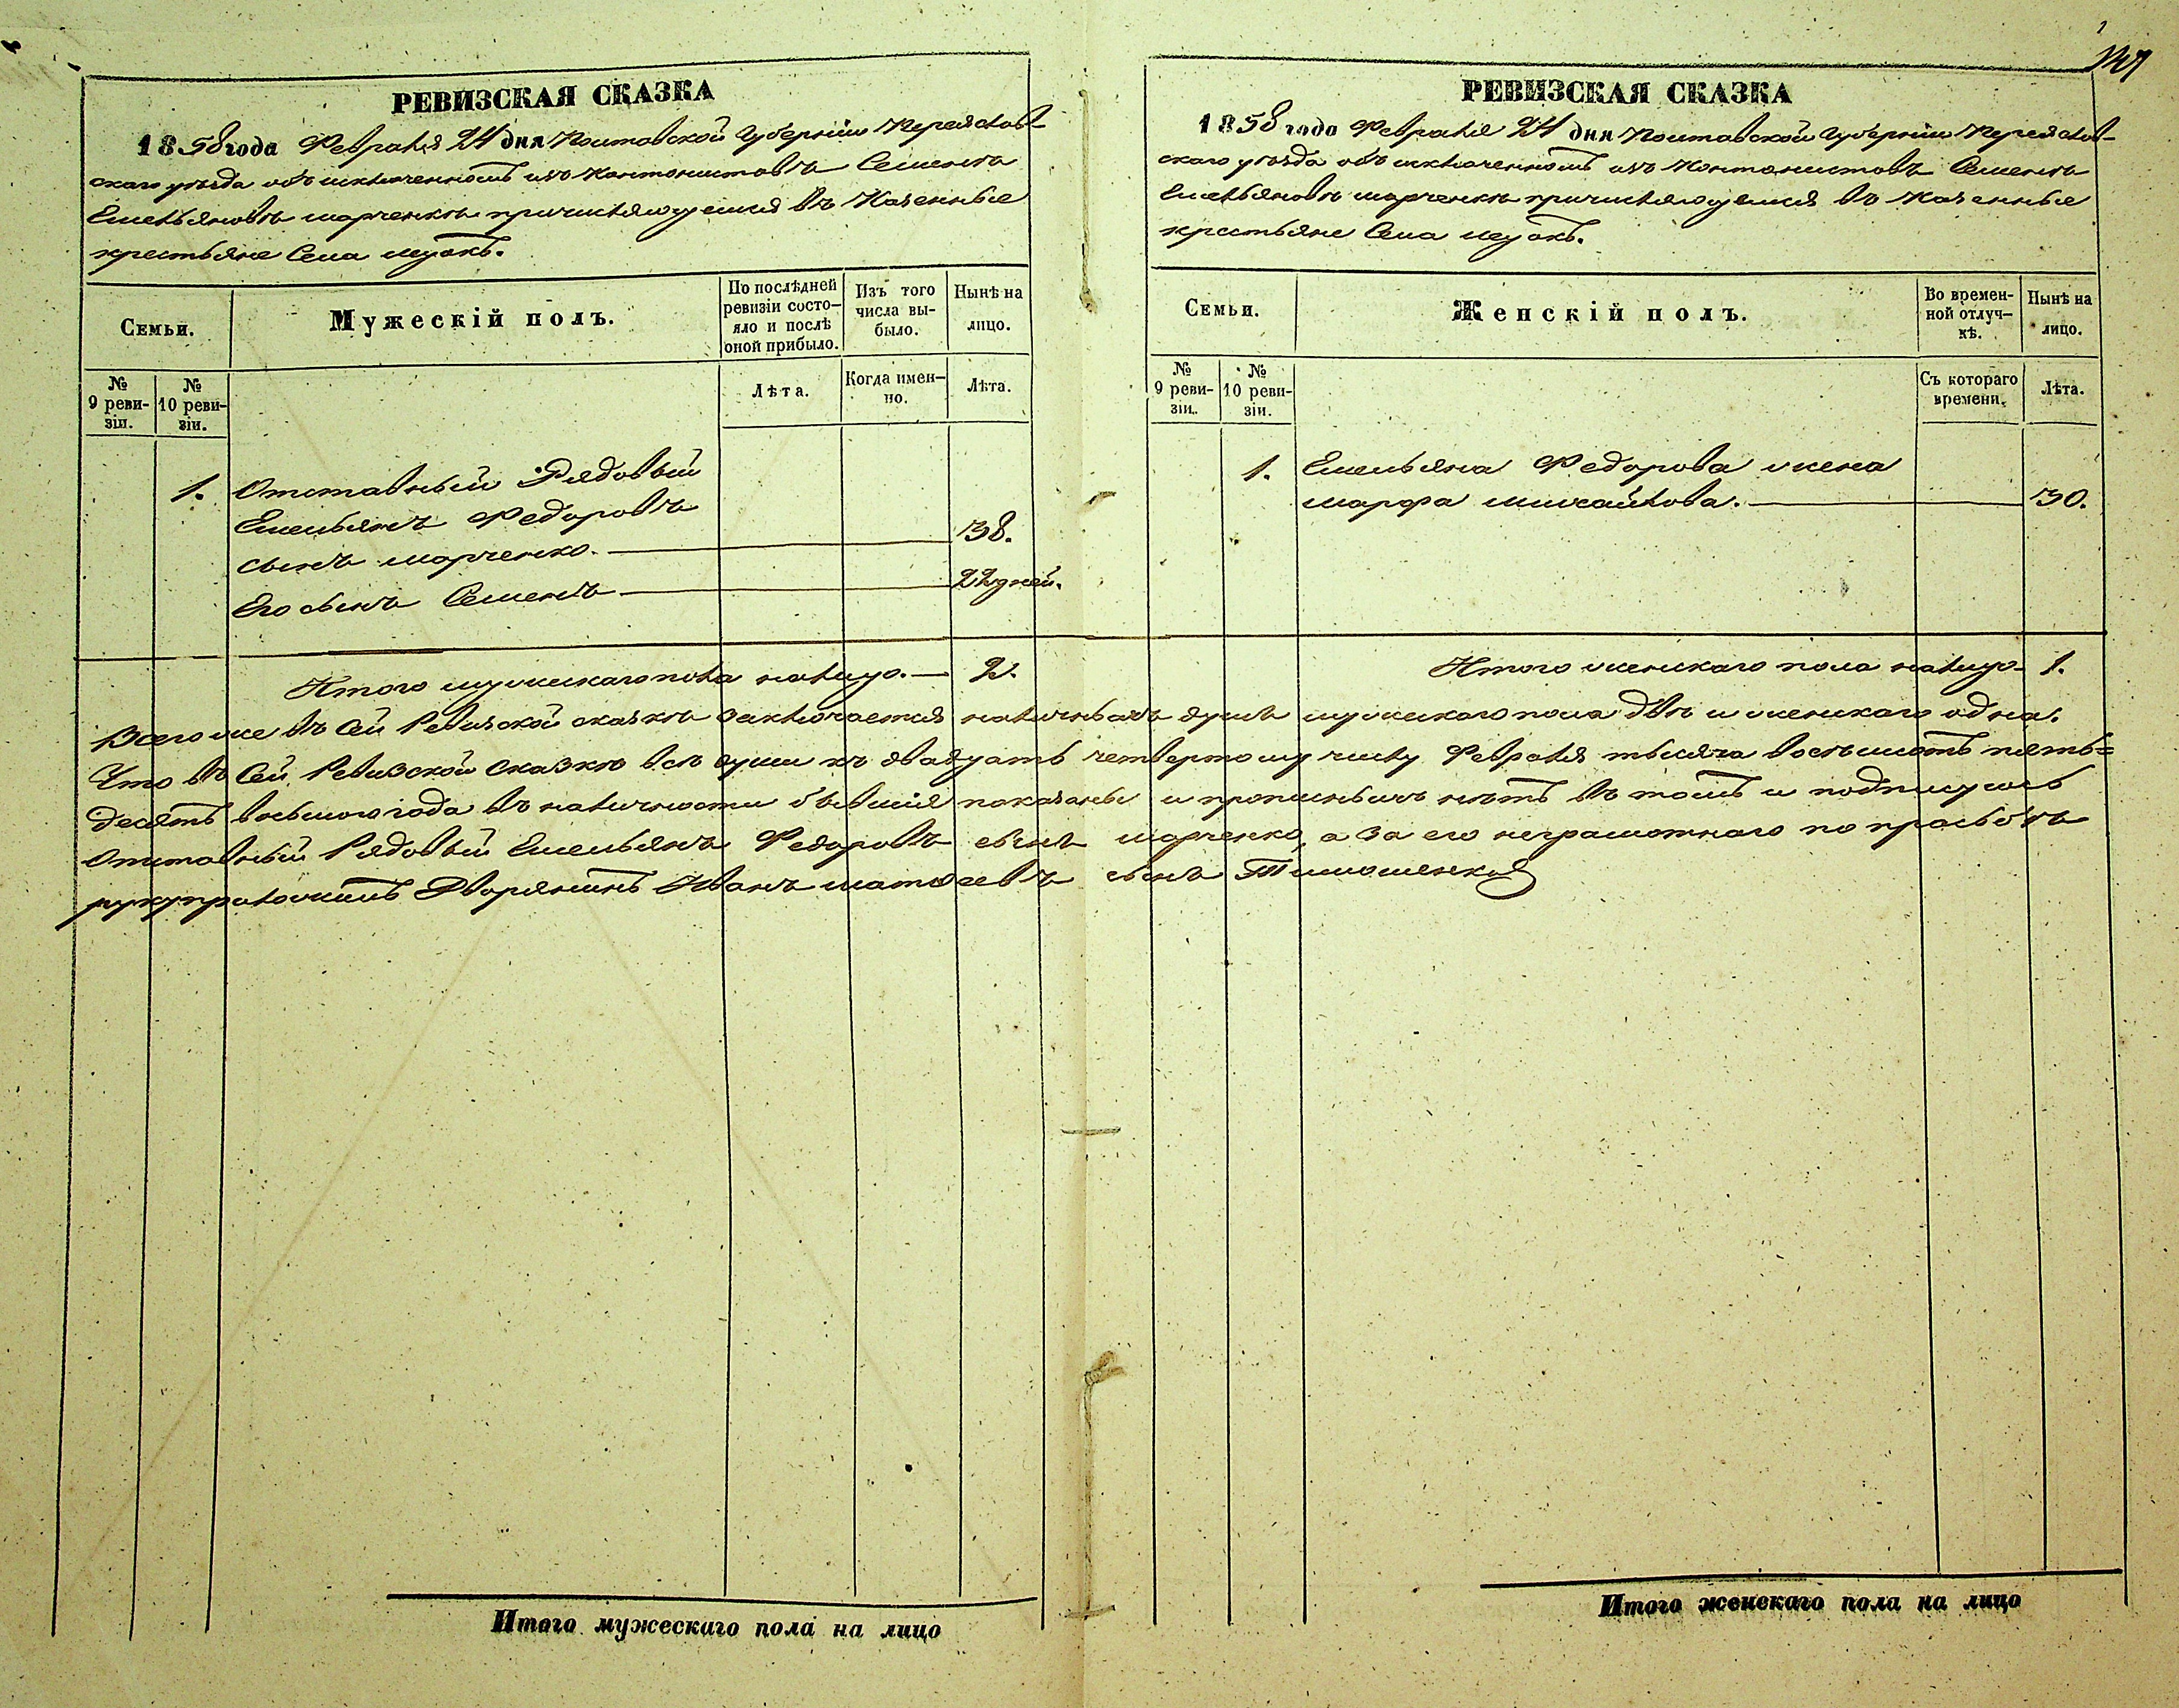 РЕВИЗСКАЯ СКАЗКА
1858 года Февраля 24 дня Полтавской Губерніи Переяслов-
скаго уѣзда объ исключенномъ изъ Кантонистовъ Семенѣ
Емельяновѣ Марченкѣ причисляющемся въ Казенные
крестьяне Села
Семьи.
Мужескій полъ.
По послѣдней ревизіи состо-яло и послѣ оной прибыло.
Изъ того числа вы-было.
Нынѣ на лицо.
№ 9 реви-зіи.
№ 10 реви-зіи.
Лѣта.
Когда имен-но.
Лѣта.
1. Отставный Рядовый
Емельянъ Федоровъ
сынъ Марченко. 38.
Его сынъ Семенъ 22 дней.
Итого мужескаго пола налицо. 2.
РЕВИЗСКАЯ СКАЗКА
1858 года Февраля 24 дня Полтавской Губерніи Переяслов-
скаго уѣзда объ исключенномъ изъ Кантонистовъ Семенѣ
Емельяновѣ Марченкѣ причисляющемся въ Казенные
крестьяне Села
Семьи.
Женскій полъ.
Во времен-ной отлуч-кѣ.
Нынѣ на лицо.
№ 9 реви-зіи.
№ 10 реви-зіи.
Съ котораго времени.
Лѣта.
1. Емельяна Федорова жена
Марфа Михайлова. 30.
Итого женскаго пола налицо 1.
Всего же въ сей Ревизской сказкѣ заключается наличныхъ душъ мужескаго пола двѣ и женскаго одна.
Что въ Сей Ревизской Сказкѣ всѣ души къ двадцать четвертому числу Февраля тысяча восемьсотъ пять=
десятъ восьмого года въ наличности бывшія показаны и прописныхъ нѣтъ въ томъ и подпишусь
Отставный Рядовый Емельянъ Федоровъ сынъ Марченко, а за его неграмотнаго по прозьбѣ
рукуприложилъ Дворянинъ Иванъ Матвеевъ сынъ Тимошенко
Итого мужескаго пола на лицо
Итого женскаго пола на лицо